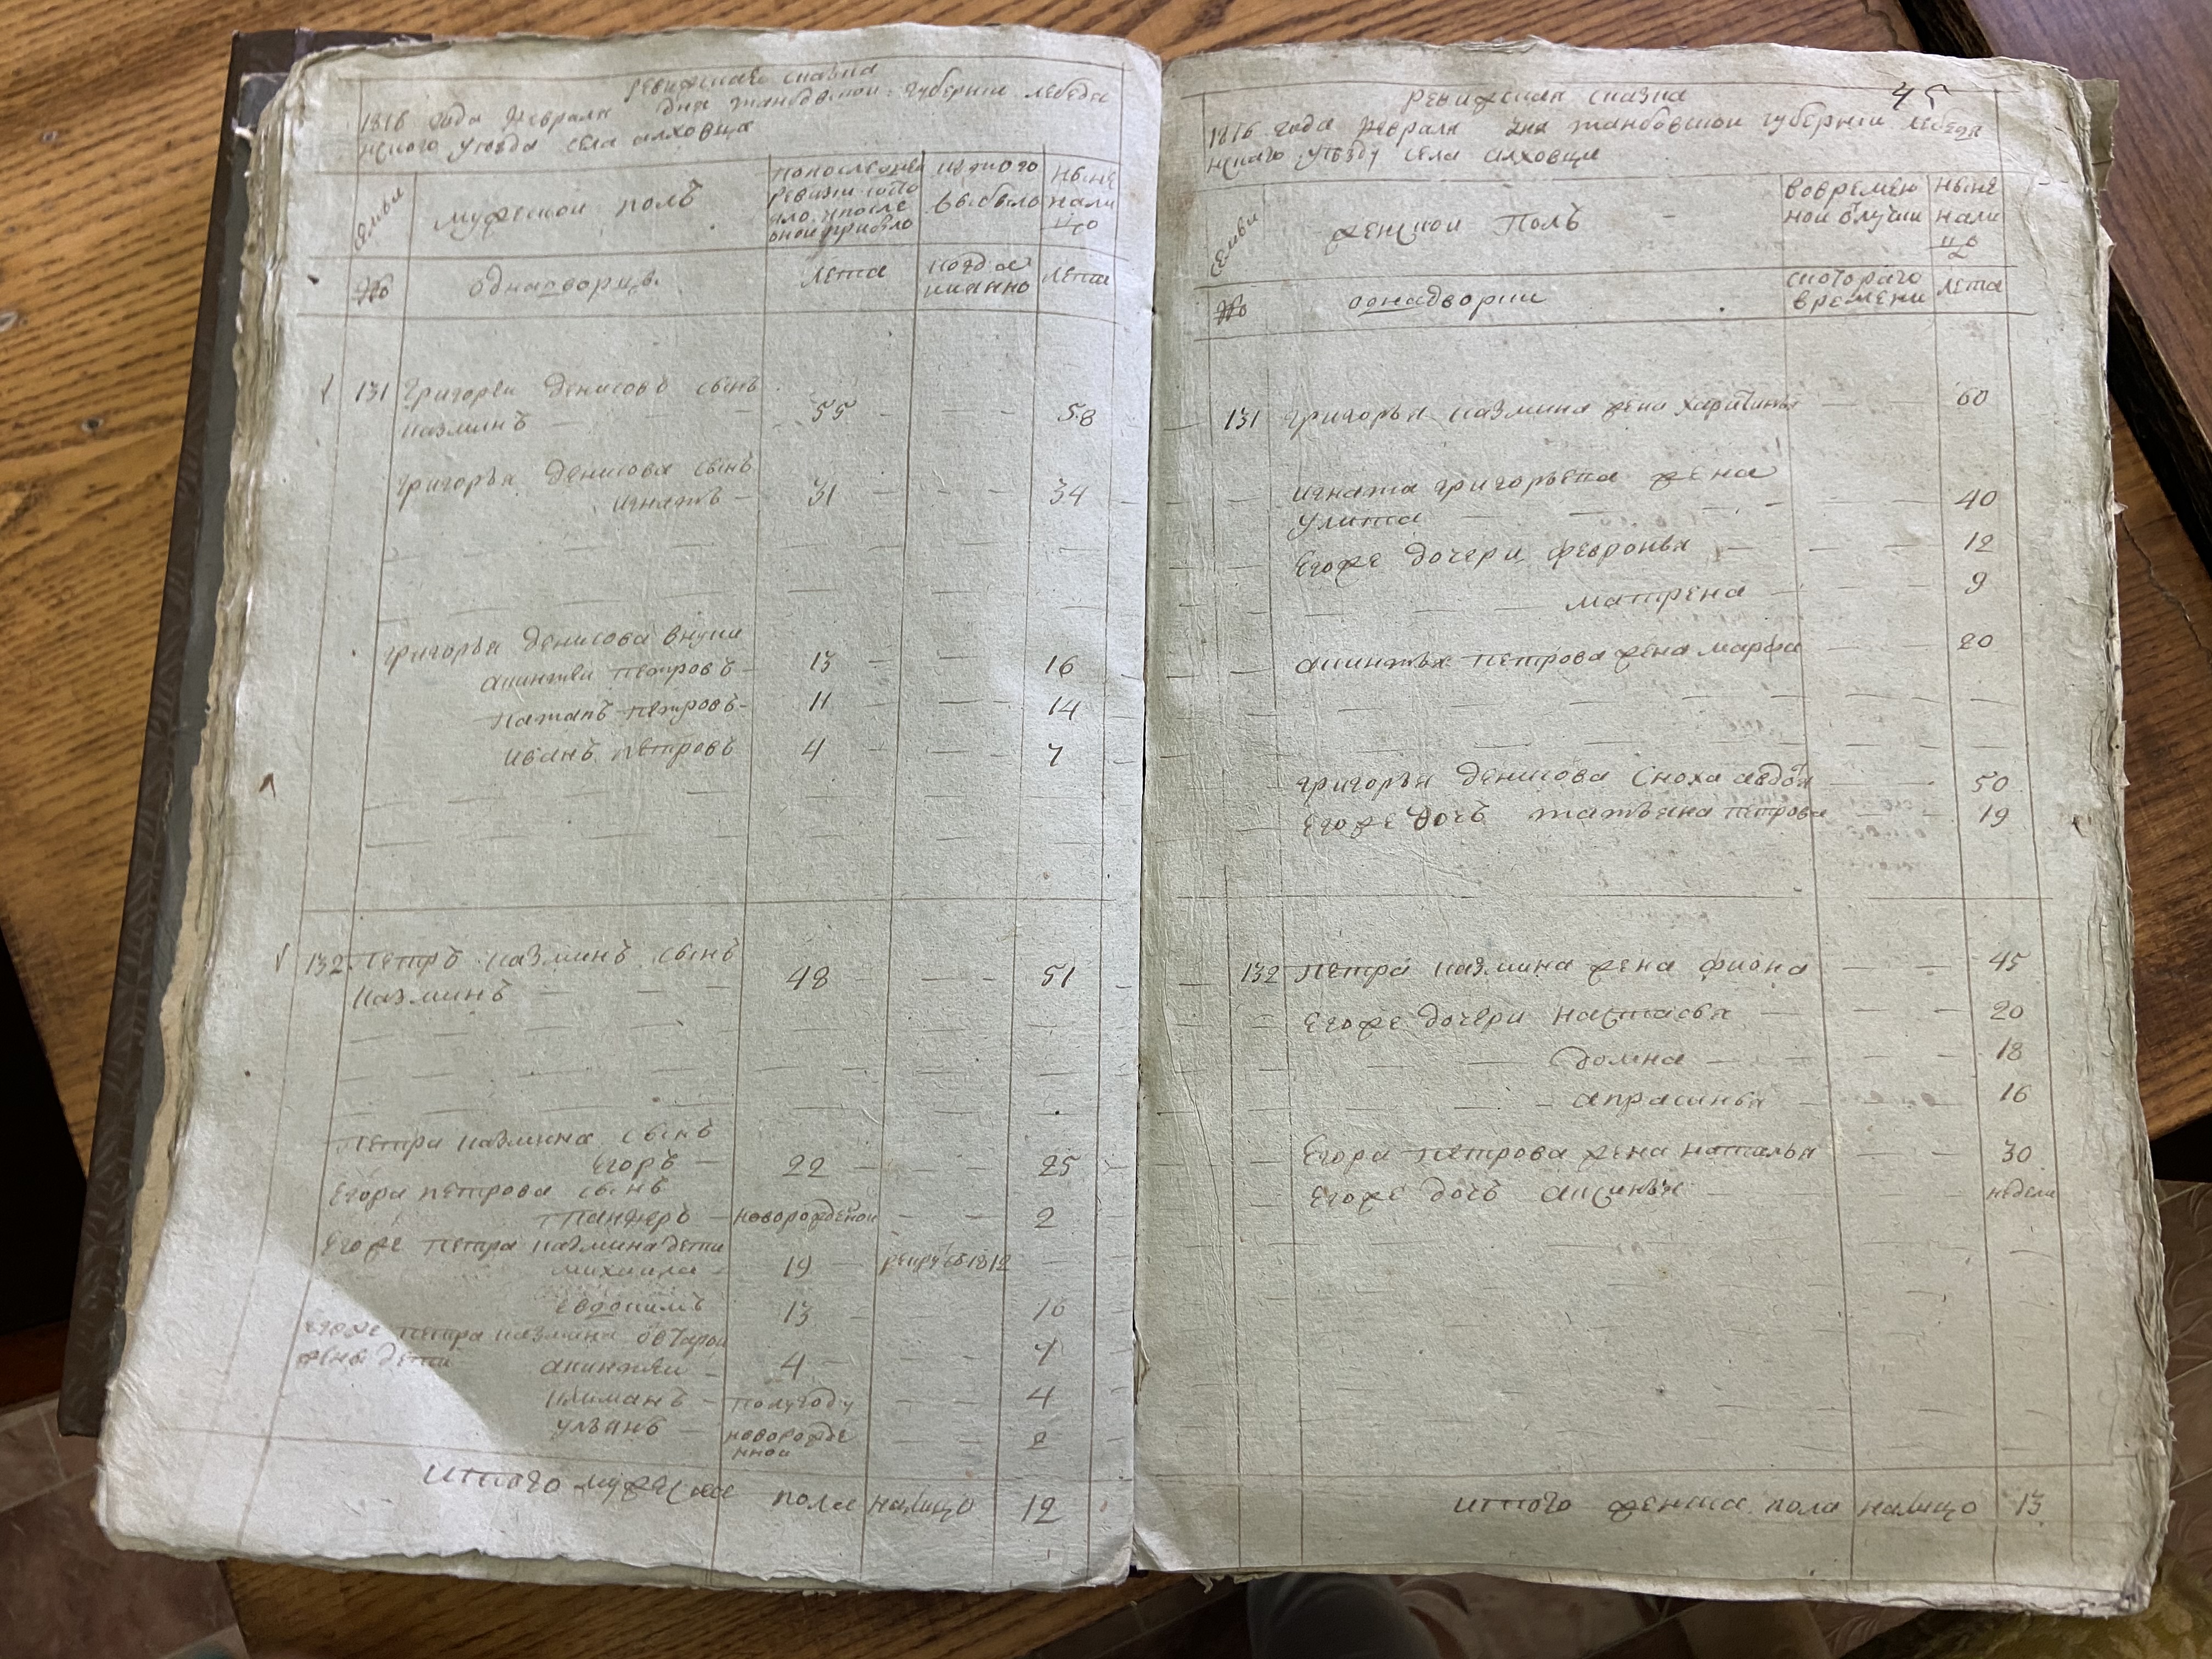 Ревижская сказка
1816 года Февраля дня танбовской губернии лебедя
нского уезда села алховца
Семьи
мужеской полъ
попоследней
ревизии состо
яло и после
оной прибыло
изтого
выбыло
ныне
нали
цо
№
однадворцы
лета
когда
имянно
лета
131 Григорей денисовъ сынъ
казминъ — 55 — — — 58
Григорья денисова сынъ
игнатъ — 31 — — — 34
Григорья денисова внуки
акинтей петровъ — 13 — — — 16
патапъ петровъ — 11 — — — 14
иванъ петровъ 4 — — — 7
132 Петръ казминъ сынъ
казминъ — — — 48 — — — 51
Петра казмина сынъ
Егоръ — 22 — — — 25
Егора петрова сынъ
— новорожденой — — 2
Егоже петра казмина дети
михаила — 19 — рекру въ 1812 —
евдокимъ 13 — — 16
егоже петра казмина
жены дети акинтей — 4 — — — 7
климанъ — полугоду — — 4
ульянъ — новорожде
нной — — 2
итого мужеска пола налицо 12
45
Ревижская сказка
1816 года Февраля дня танбовской губернии лебедя
нского уезду села алховца
Семьи
женской Полъ
вовремен
ной отлучки
ныне
нали
цо
№
однадворки
скотораго
времени
лета
131 Григорья казмина жена харитинья — — 60
игната григорьева жена
улита — — — 40
Егоже дочери февронья — — — 12
матрена — 9
акинтья петрова жена марфа — — 20
Григорья денисова сноха авдотя — — 50
Егоже дочь татьяна петрова — — 19
132 Петра казмина жена фиона — — — 45
Егоже дочери настасья — — — 20
домна — — — 18
апрасинья — — — 16
Егора петрова жена наталья — — 30
Егоже дочь аксинья — недели
итого женска пола налицо 13